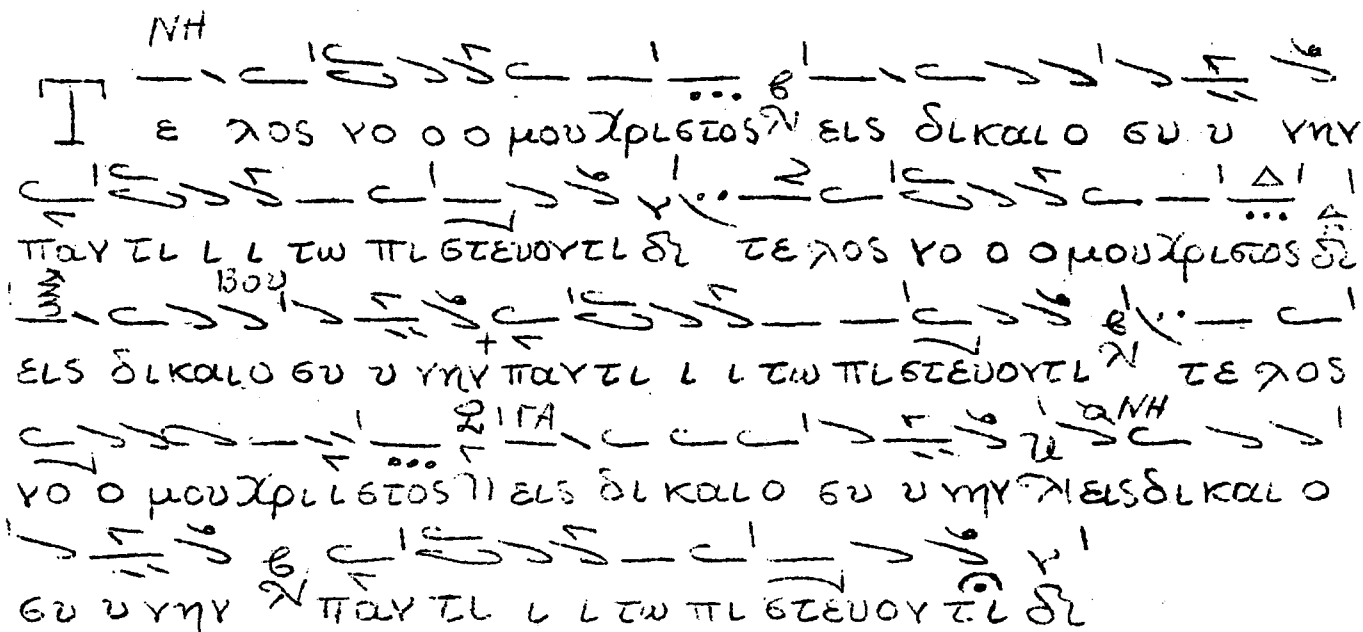 ΝΗ
Τε λος νο ο ο μου Χριστος εις δικαιο συ υ νην
Δ
παν τι ι ι τω πιστευοντι δι τελος νο ο ο μου Χριστος δι
ΒΟΥ
εις δικαιοσυ υ νην παντι ι ι τω πιστευοντι τελος
ΓΑ ΝΗ
νο ο μου Χρι ι στος εις δι και ο συ υ νην εις δικαι ο
συ υ νην παν τι ι ι τω πι στευον τι δι